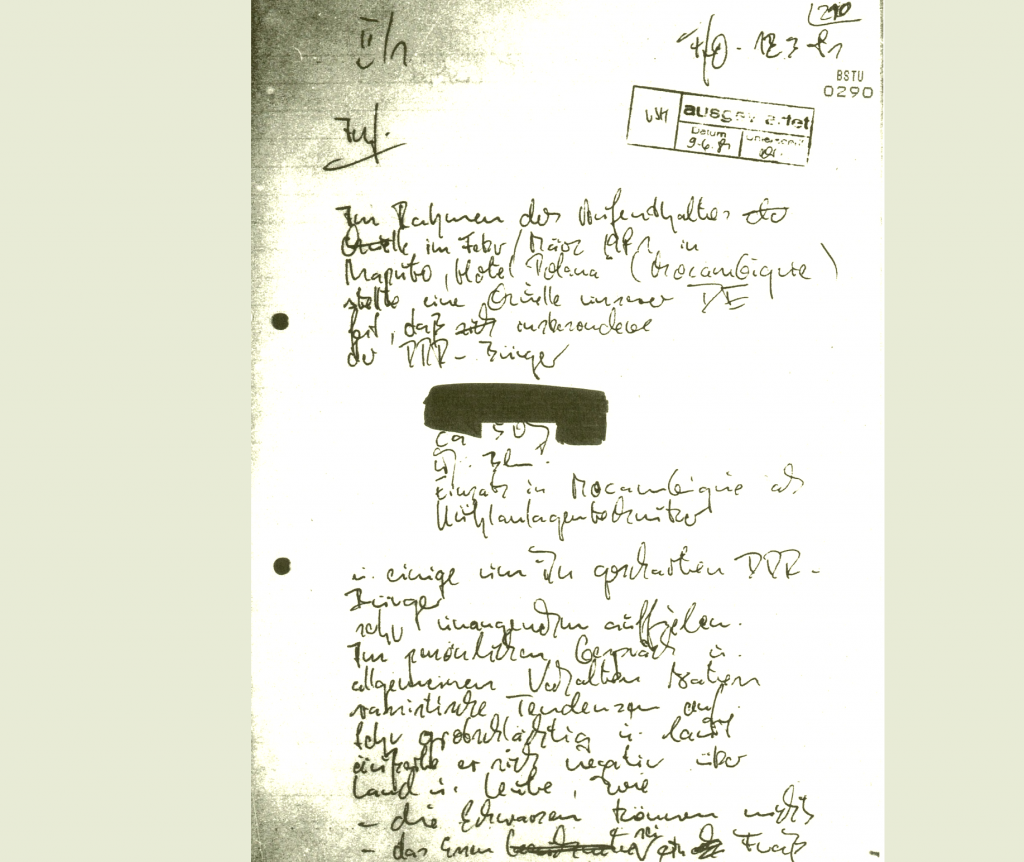 290
II/1
12.3.81
BSTU
0290
ausgewertet
Datum
9.6.81
Inf.
Im Rahmen des Aufenthaltes der
Quelle im Febr/März 1981 in
Maputo, Hotel "Polana" (Mocambique)
stellte eine Quelle unserer DE
fest, daß sich insbesondere
der DDR-Bürger
ca 50 J
Einsatz in Mocambique als
Kühlanlagentechniker
u. einige um ihn gescharten DDR-
Bürger
sehr unangenehm auffielen.
Im persönlichen Gespräch u.
allgemeinen Verhalten traten
rassistische Tendenzen auf
sehr grobschlächtig u. laut
äußerte er sich negativ über
Land u. Leute, wie
- die Schwarzen können nichts
- das Essen sei ein Fraß